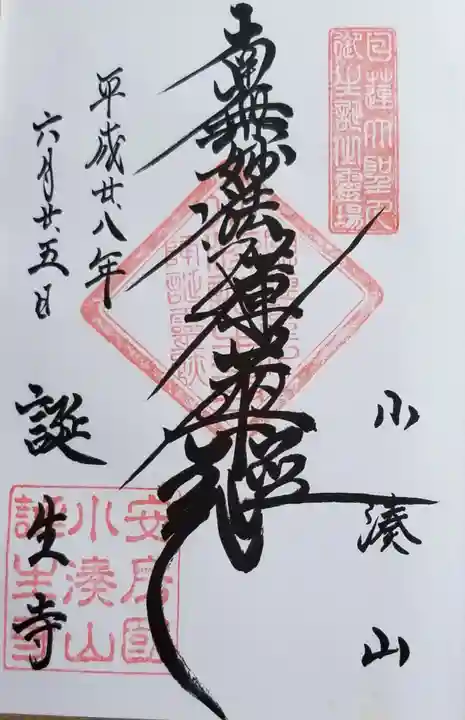 日蓮大聖人
御生誕之霊場
小湊山
南無妙法蓮華経
平成廿八年
六月廿五日
誕生寺
安房国
小湊山
誕生寺